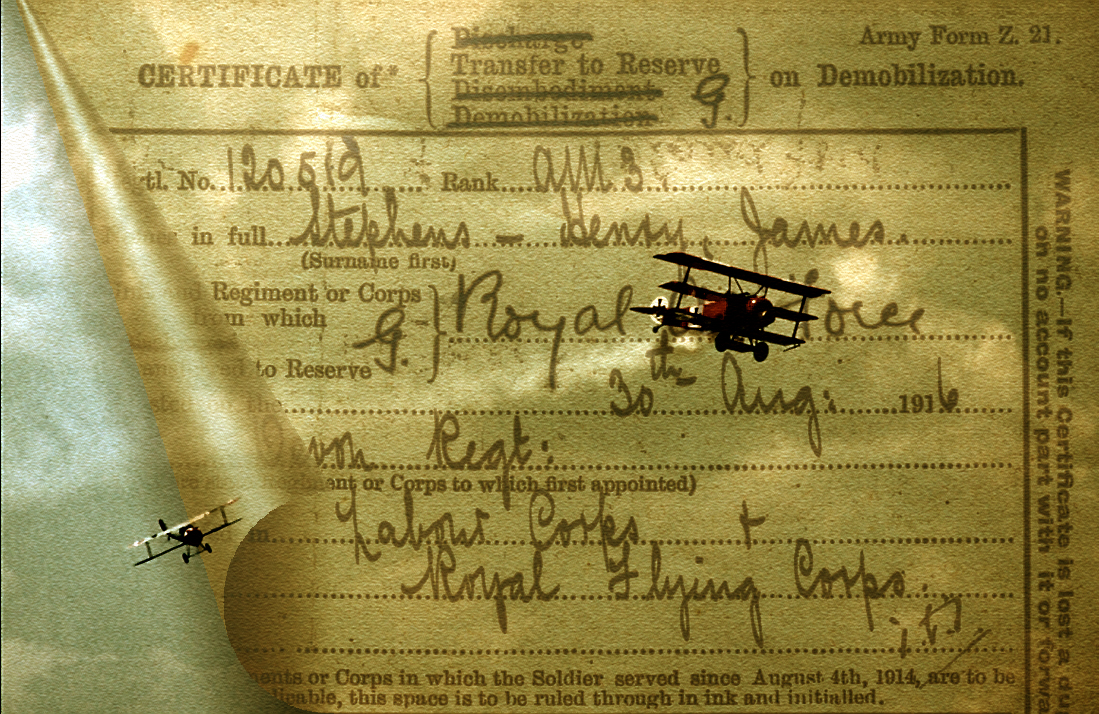 Army Form Z. 21.
Discharge
CERTIFICATE of* Transfer to Reserve on Demobilization.
Disembodiment G.
Demobilization
tl. No. 120519 Rank AM 3
in full Stephens - Henry James
(Surname first)
Regiment or Corps
from which G. Royal Force
to Reserve
the 30th Aug: 1916
Devon Regt:
nt or Corps to which first appointed)
Labour Corps +
Royal Flying Corps.
ents or Corps in which the Soldier served since August 4th, 1914, are to be
licable, this space is to be ruled through in ink and initialled.
WARNING.—If this Certificate is lost a du
on no account part with it or forwa